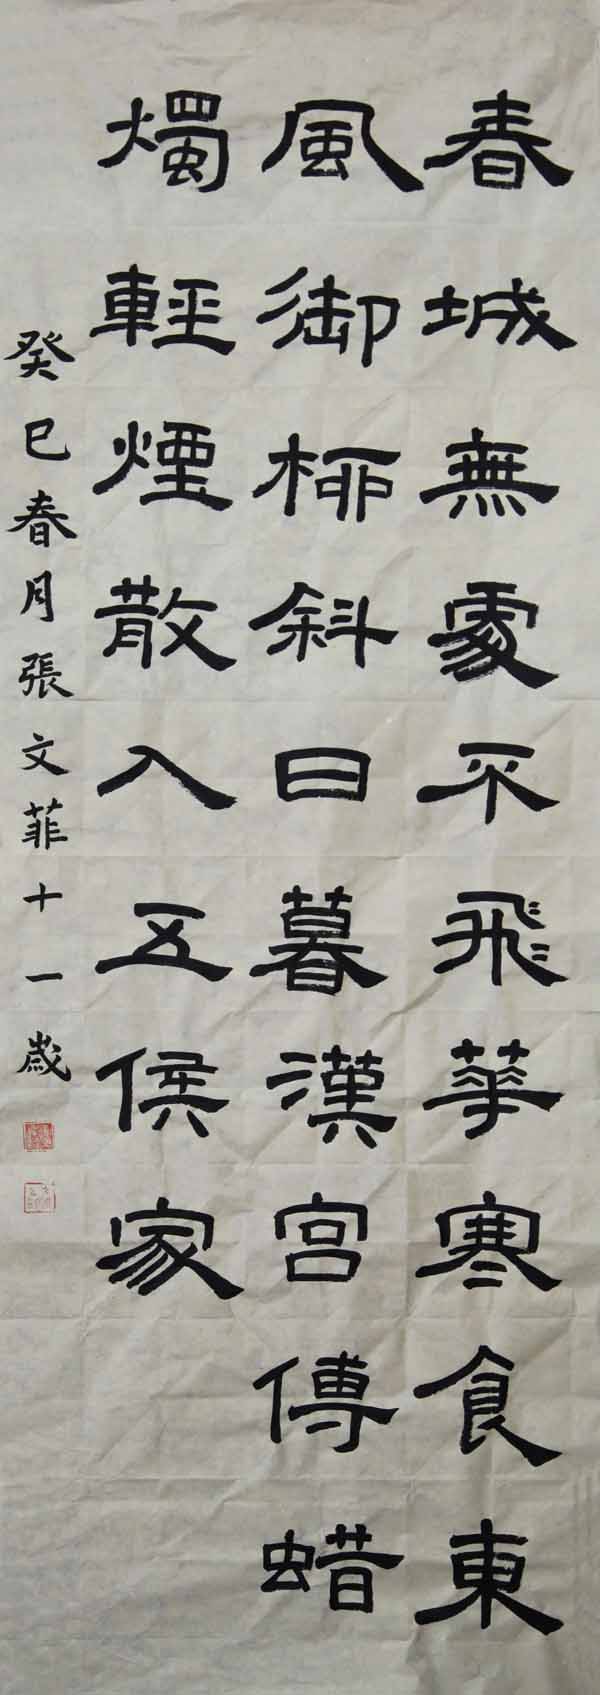 春城無處不飛華寒食東
風御柳斜日暮漢宮傳蜡
燭輕煙散入五侯家
癸巳春月張文菲十一歲